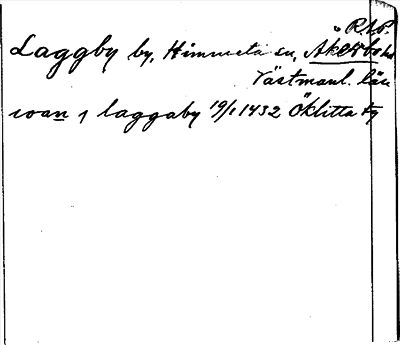 RAP.
Laggby by, Himmeta sn, Åkerbo hd
Västmanl. län
ioan j laggaby 19/1 1432 Öklitta ty